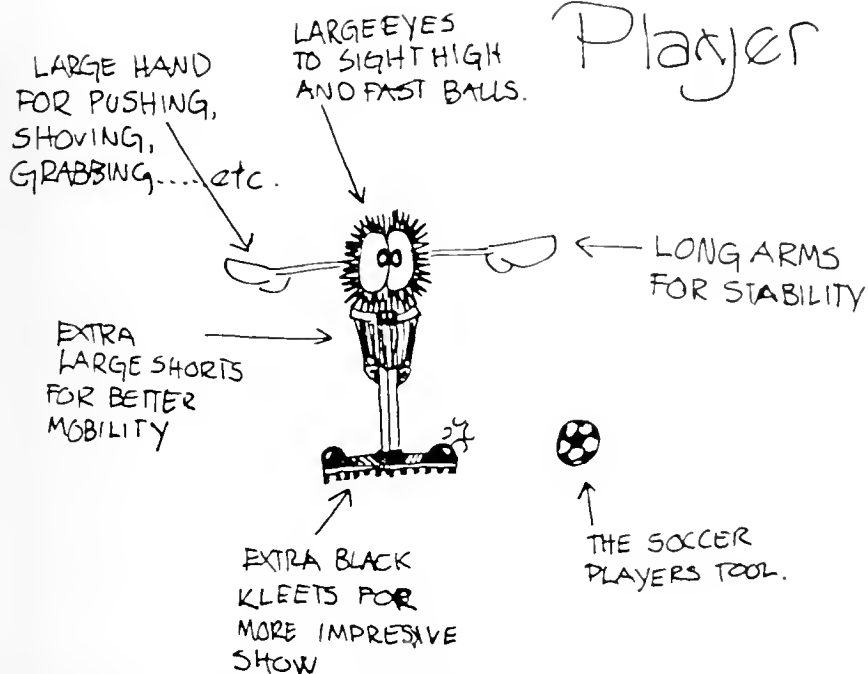 Player
LARGE HAND
FOR PUSHING,
SHOVING,
GRABBING.....etc.
LARGE EYES
TO SIGHT HIGH
AND FAST BALLS.
LONG ARMS
FOR STABILITY
EXTRA
LARGE SHORTS
FOR BETTER
MOBILITY
EXTRA BLACK
KLEETS FOR
MORE IMPRESIVE
SHOW
THE SOCCER
PLAYERS TOOL.